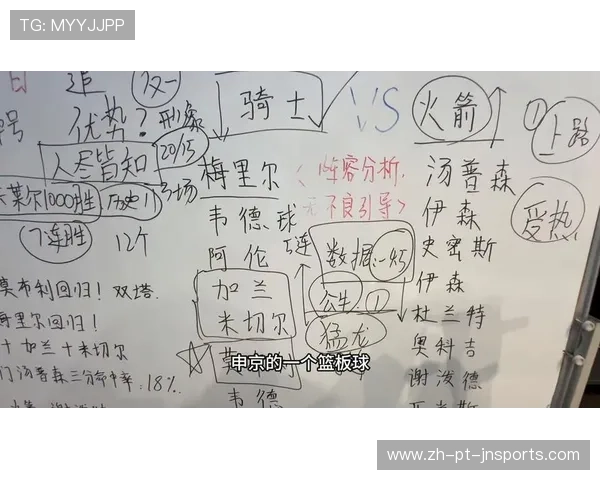 TG: MYYJJPP
追
优势?
形象
骑士
VS
火箭
①
上路
人尽皆知
20/15
梅里尔
〈 阵容分析,
不良引导〉
汤普森
莱尔1000胜
历史1
韦德
伊森
受热
7连胜
12个
阿伦
5连
数据:-45
史密斯
莫布利回归! 双塔.
加兰
米切尔
①
伊森
梅里尔回归!
猛龙
杜兰特
十加兰十米切尔
奥科吉
申京的一个篮板球
汤普森三分命中率:18%
谢泼德
韦德
www.zh-pt-jnsports.com